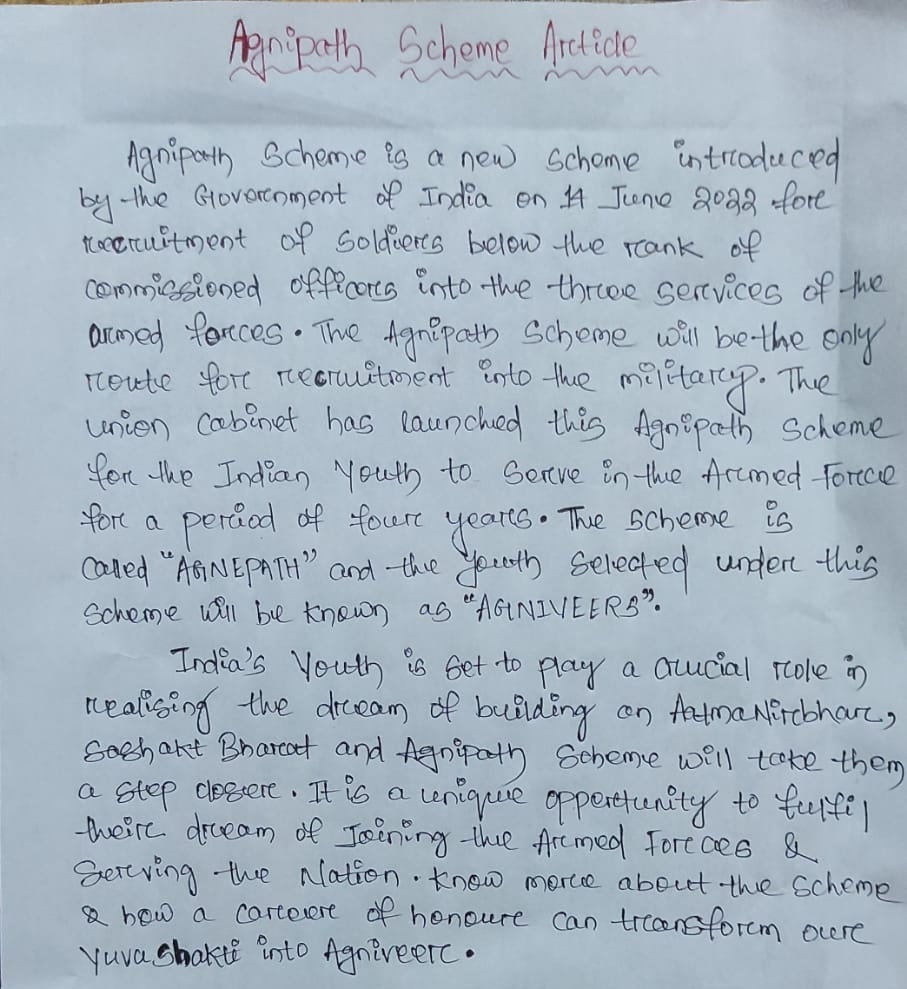 Agnipath Scheme Article
Agnipath Scheme is a new scheme introduced
by the Government of India on 14 June 2022 for
recruitment of soldiers below the rank of
commissioned officers into the three services of the
armed forces. The Agnipath Scheme will be the only
route for recruitment into the military. The
union cabinet has launched this Agnipath Scheme
for the Indian Youth to Serve in the Armed Force
for a period of four years. The scheme is
called "AGNEPATH" and the youth selected under this
Scheme will be known as "AGNIVEERS".
India's Youth is set to play a crucial role in
realising the dream of building an AatmaNirbhar,
Sashakt Bharat and Agnipath Scheme will take them
a step closer. It is a unique opportunity to fulfil
their dream of Joining the Armed Forces &
Serving the Nation. Know more about the scheme
& how a career of honour can transform our
Yuva Shakti into Agniveer.